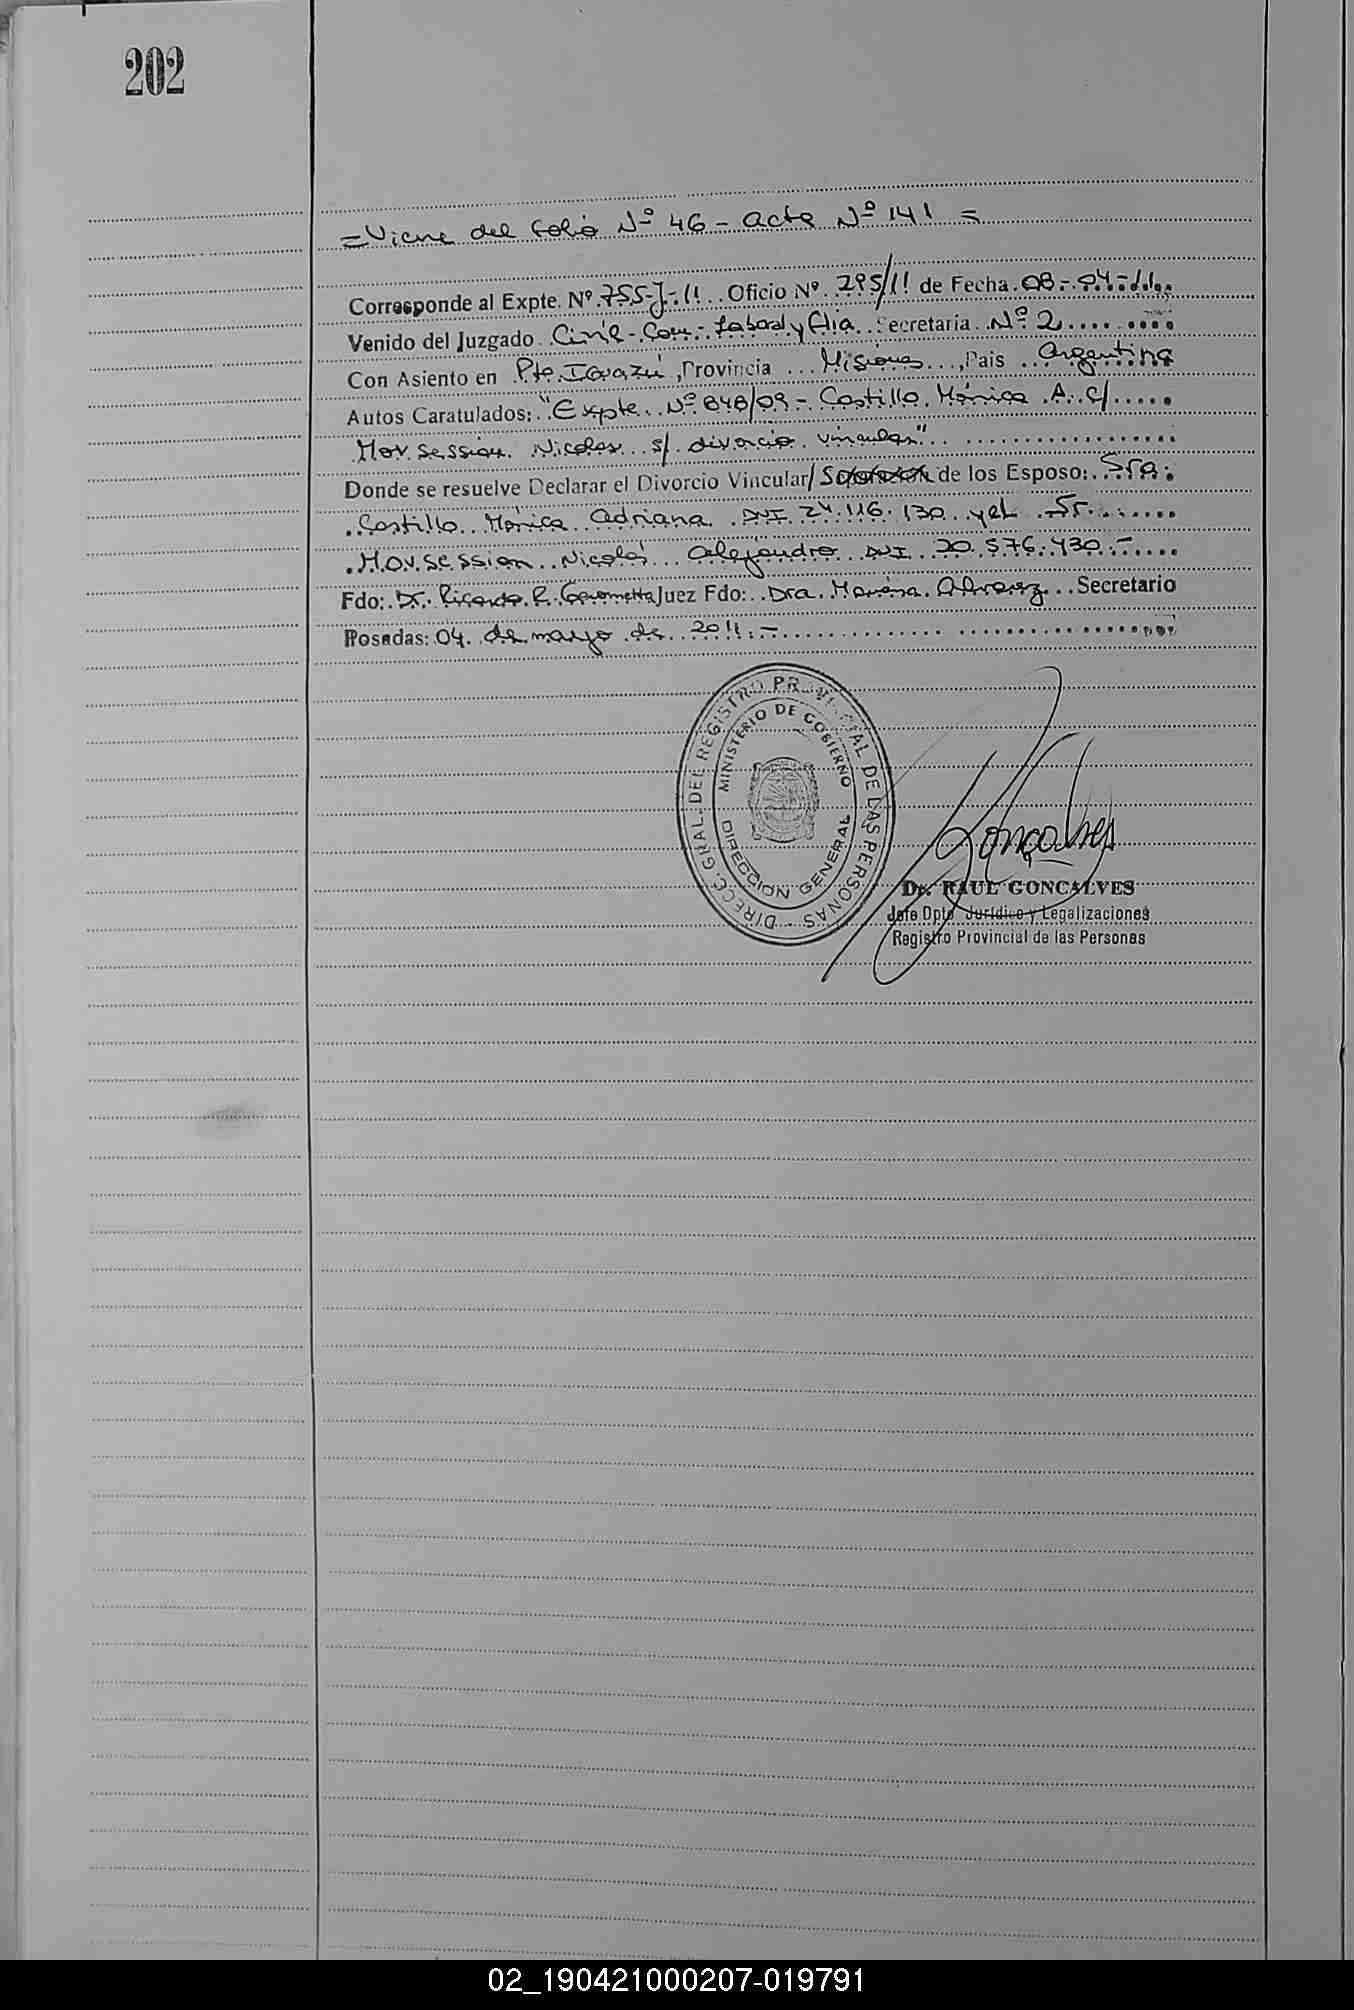 202
= Viene del folio Nº 46 - acta Nº 141 =
Corresponde al Expte. Nº 755-J-11 Oficio Nº 295/11 de Fecha 08-04-11
Venido del Juzgado Civil-Com-Laboral y flia Secretaria Nº 2
Con Asiento en Pto. Iguazú, Provincia Misiones, Pais Argentina
Autos Caratulados: "Expte Nº 848/09 - Castillo Mónica A. c/
Movsession Nicolas s/ divorcio vincular"
Donde se resuelve Declarar el Divorcio Vincular/ de los Esposo: Sra.
Castillo Mónica Adriana DNI 24.116.130 y el Sr.
Movsession Nicolás Alejandro DNI 20.576.430.-
Fdo: Dr. Ricardo R. Juez Fdo: Dra. Mariana Alvarez Secretario
Posadas: 04 de mayo de 2011.-
DIRECC. GRAL. DEL REGISTRO PROVINCIAL DE LAS PERSONAS
MINISTERIO DE GOBIERNO
DIRECCION GENERAL
Gonçalves
Dr. RAUL GONCALVES
Jefe Dpto Jurídico y Legalizaciones
Registro Provincial de las Personas
02_190421000207-019791